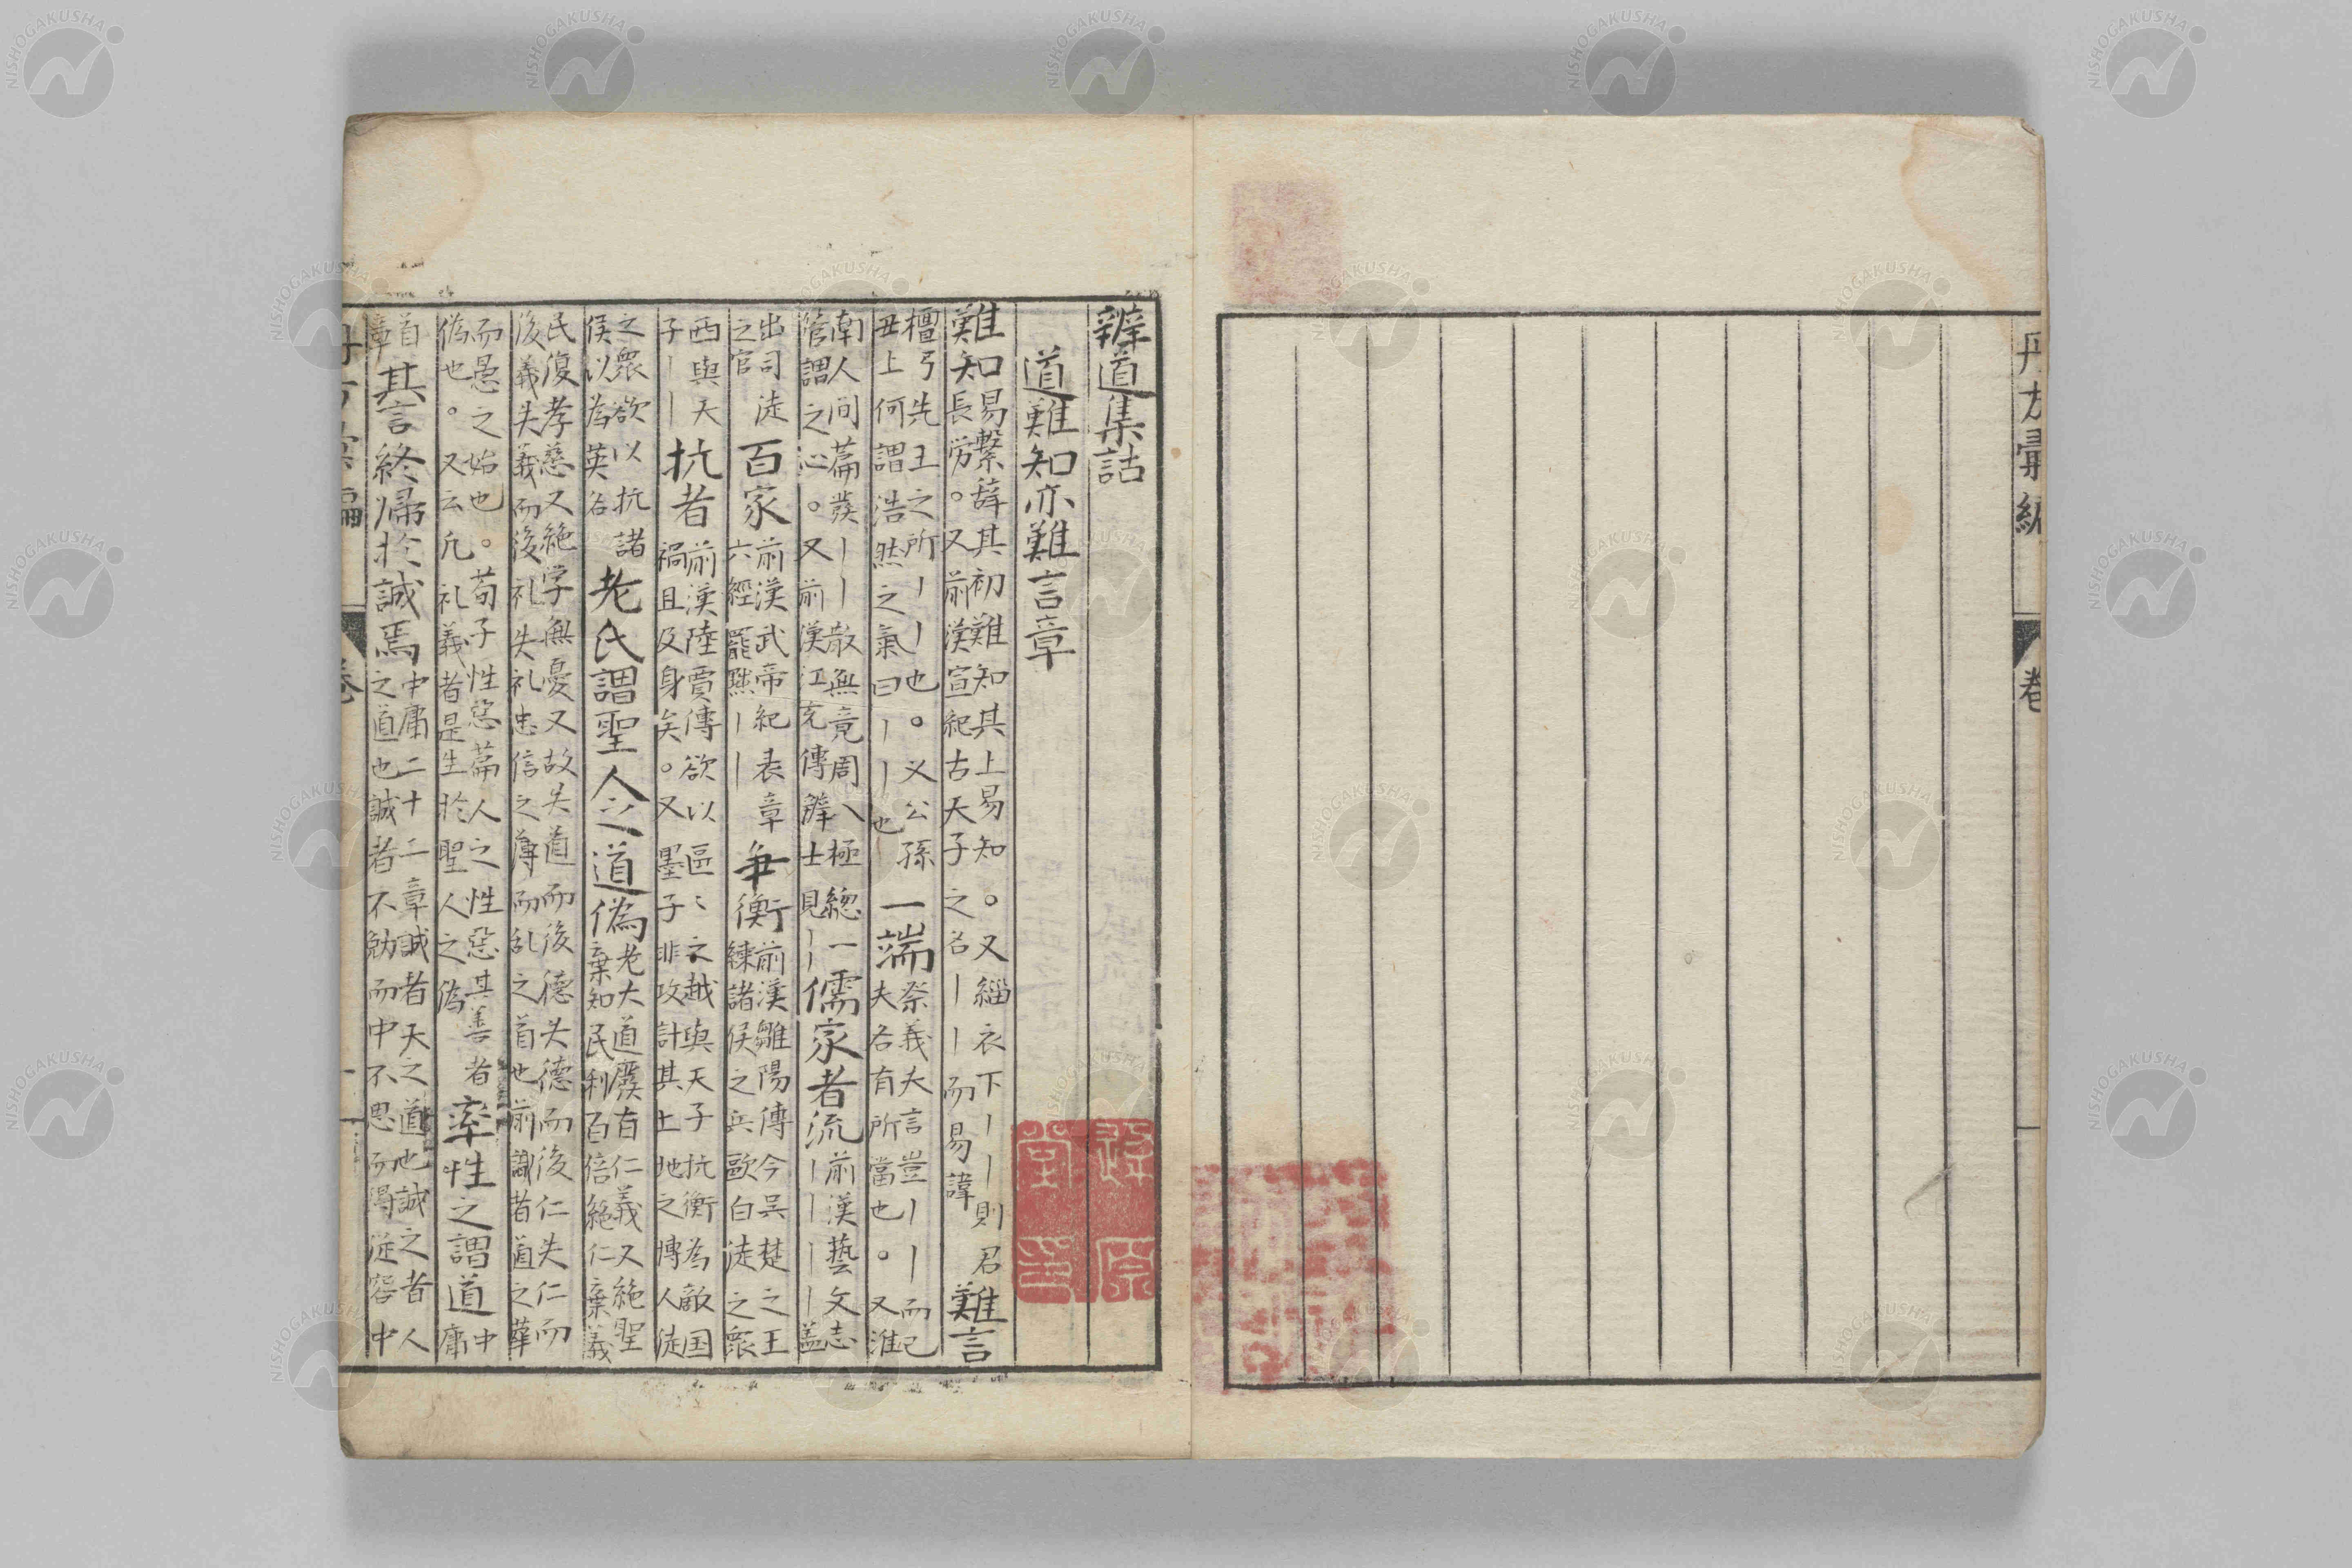 丹方彙編 卷
辨道集詁
道難知亦難言章
難知
易繫辞其初難知其上易知。又緇衣下丨丨則君
長労。又前漢宣紀古天子之名丨丨而易諱
難言
檀弓先王之所丨丨也。又公孫
丑上何謂浩然之氣曰丨丨也
一端
祭義夫言豈丨丨而已
夫各有所當也。又淮
南人间篇發丨丨散無竟周八極總一
管謂之心。又前漢江充傳觧士見丨丨
儒家者流
前漢藝文志
丨丨丨丨蓋
出司徒
之官
百家
前漢武帝紀表章
六經罷黜丨丨
争衡
前漢雛陽傳今呉楚之王
練諸侯之兵歐白徒之衆
西與天
子丨丨
抗者
前漢陸賈傳欲以區〻之越與天子抗衡為敵国
禍且及身矣。又墨子非攻計其土地之博人徒
之衆欲以抗諸
侯以為英名
老氏謂聖人之道偽
老大道廢有仁義又絶聖
棄知民利百倍絶仁棄義
民復孝慈又絶学無憂又故失道而後德失德而後仁失仁而
後義失義而後礼失礼忠信之薄而乱之首也前識者道之華
而愚之始也。荀子性惡篇人之性惡其善者
偽也。又云凡礼義者是生於聖人之偽
率性之謂道
中
庸
首
章
其言終帰於誠焉
中庸二十二章誠者天之道也誠之者人
之道也誠者不勉而中不思而得従容中